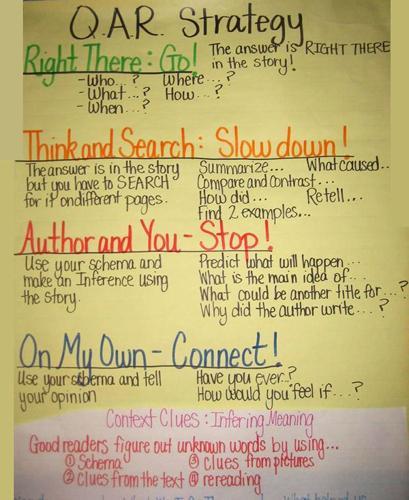 Q.A.R. Strategy
Right There: Go!
The answer is RIGHT THERE
in the story!
- Who...? Where...?
- What...? How...?
- When...?
Think and Search: Slow down!
The answer is in the story
but you have to SEARCH
for it on different pages.
Summarize... What caused...
Compare and Contrast...
How did... Retell...
Find 2 examples...
Author and You - Stop!
Use your schema and
make an Inference using
the story.
Predict what will happen...
What is the main idea of...
What could be another title for...?
Why did the author write...?
On My Own - Connect!
Use your schema and tell
your opinion
Have you ever..?
How would you feel if...?
Context Clues: Infering Meaning
Good readers figure out unknown words by using...
① Schema ③ clues from pictures
② clues from the text ④ rereading